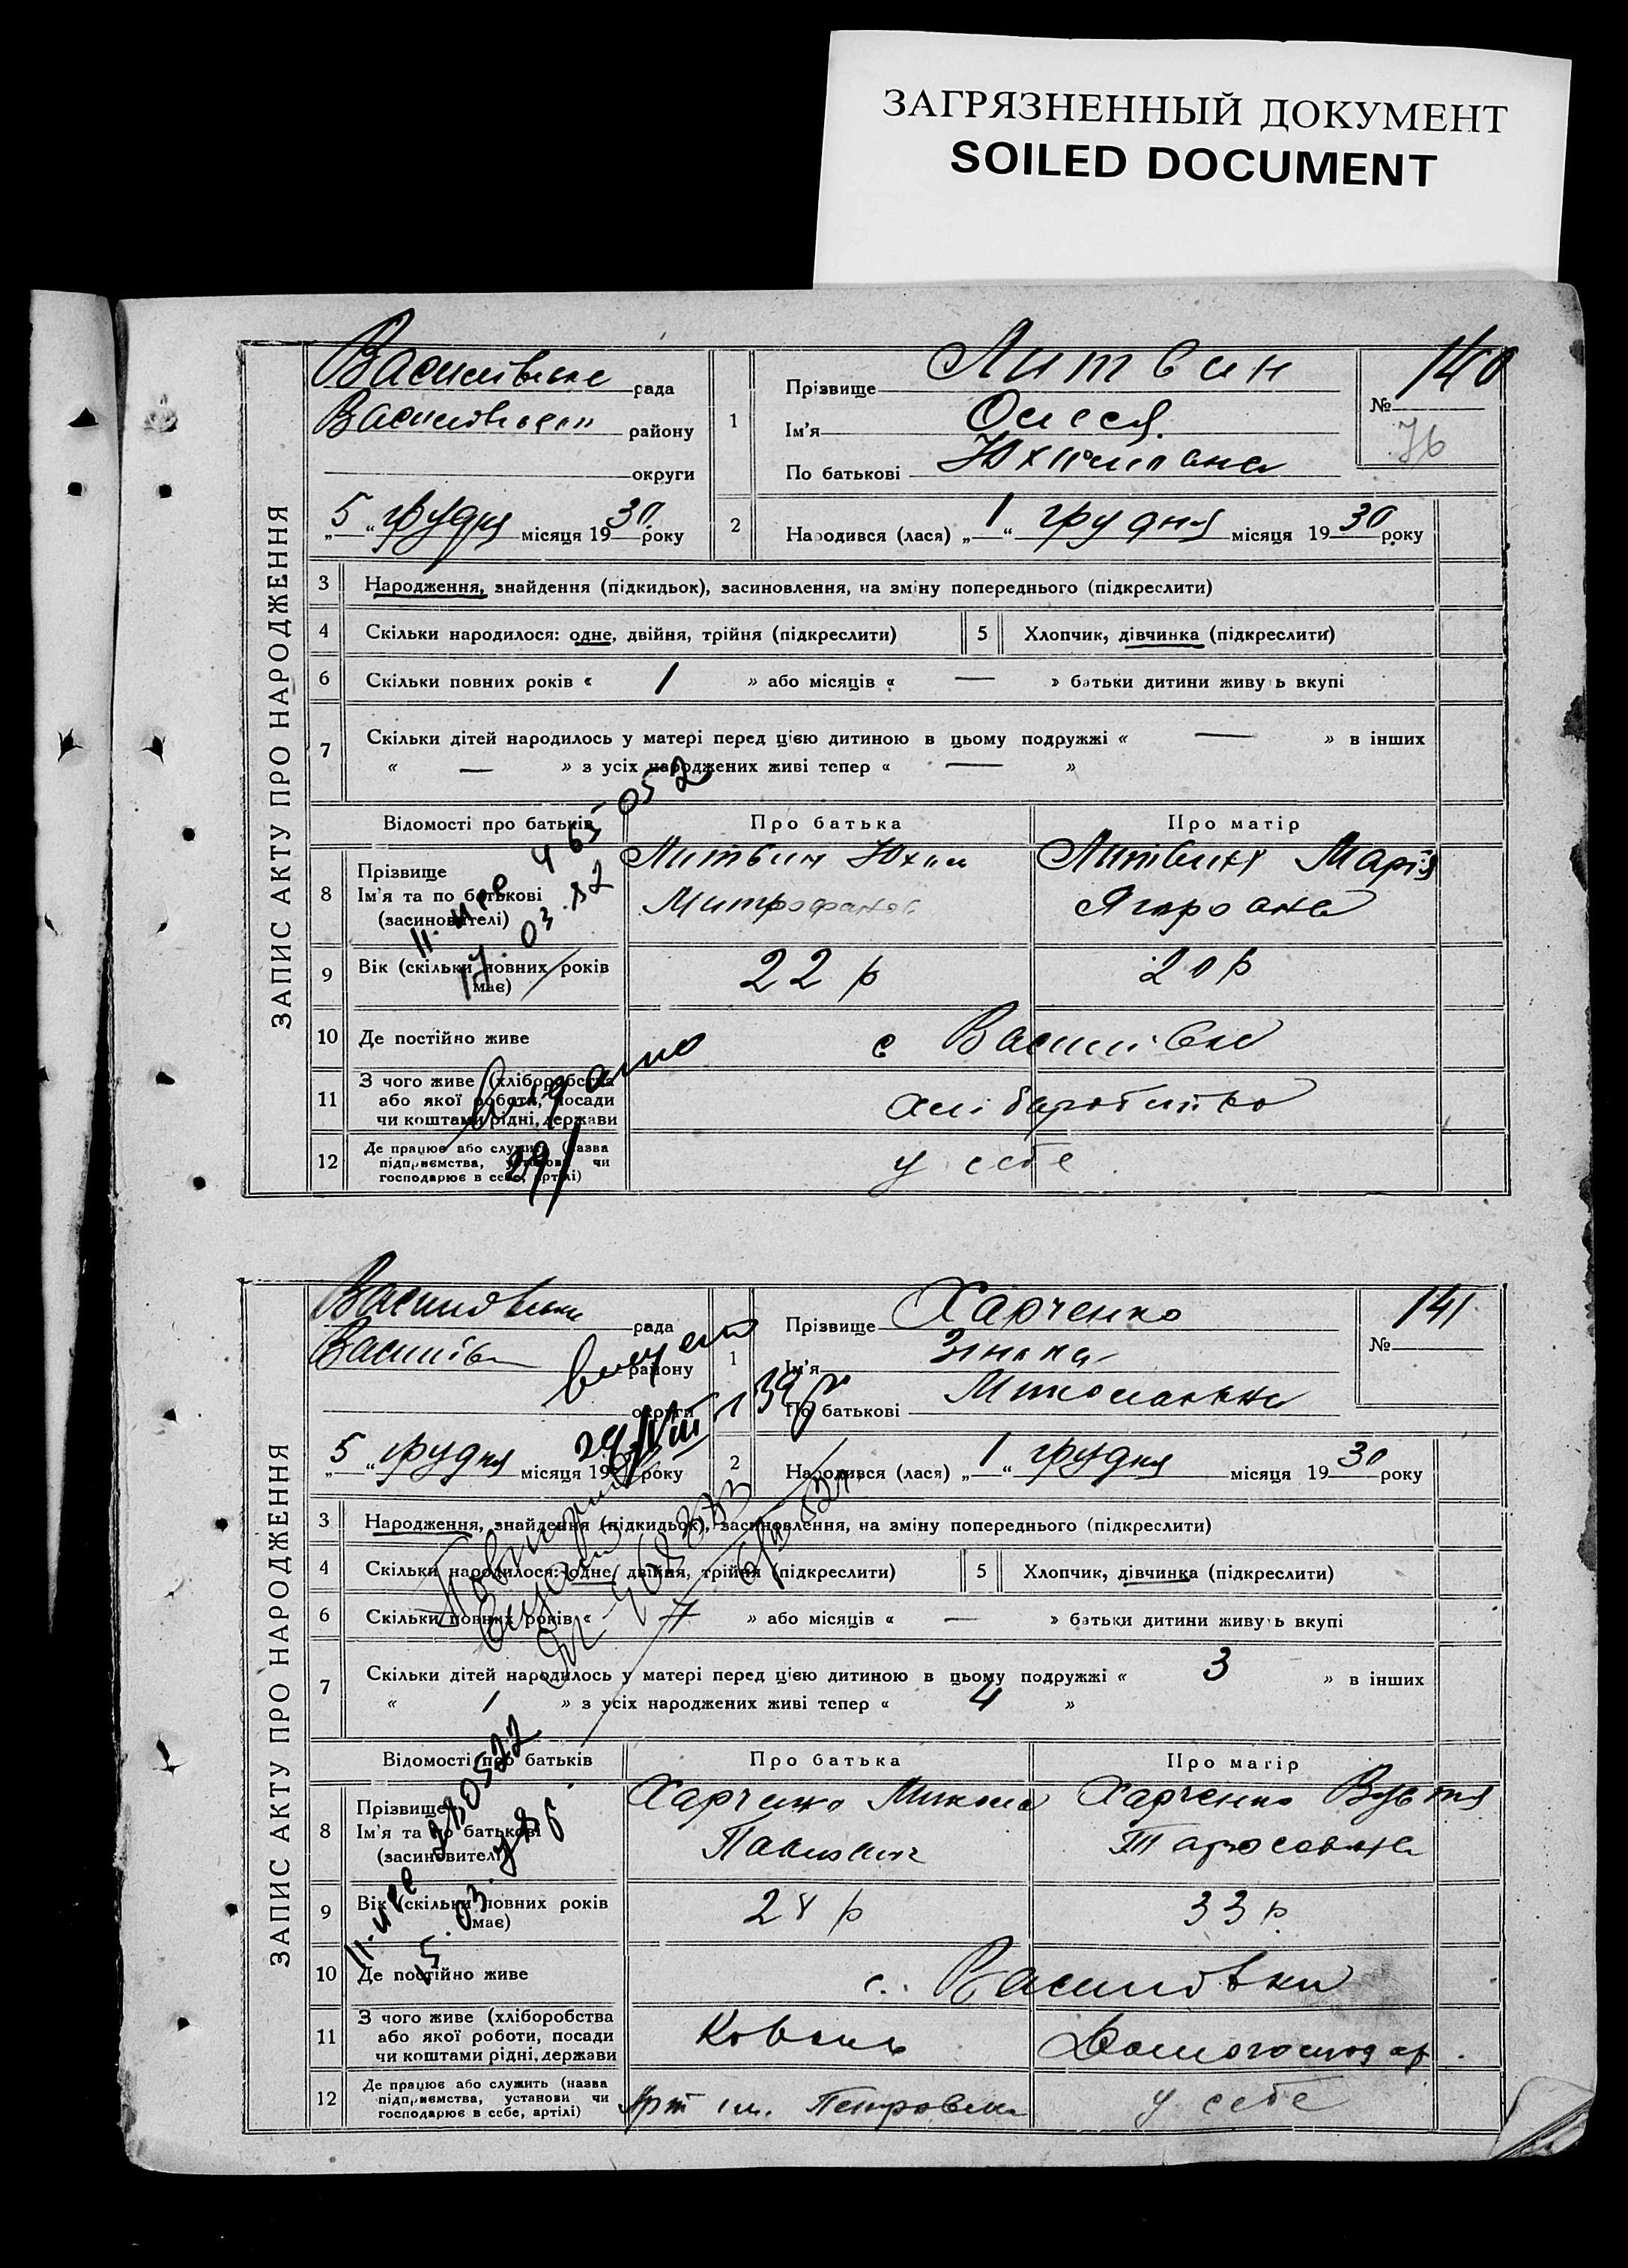 ЗАГРЯЗНЕННЫЙ ДОКУМЕНТ
SOILED DOCUMENT
ЗАПИС АКТУ ПРО НАРОДЖЕННЯ
рада
району
округи
„5“ грудня місяця 1930 року
1 Прізвище Литвин
Ім'я Олеся
По батькові
№ 140
76
2 Народився (лася) „1“ грудня місяця 1930 року
3 Народження, знайдення (підкидьок), засиновлення, на зміну попереднього (підкреслити)
4 Скільки народилося: одне, двійня, трійня (підкреслити) 5 Хлопчик, дівчинка (підкреслити)
6 Скільки повних років « 1 » або місяців « — » батьки дитини живуть вкупі
7 Скільки дітей народилось у матері перед цією дитиною в цьому подружжі « — » в інших
« — » з усіх народжених живі тепер « — »
Відомості про батьків Про батька Про матір
8 Прізвище Литвин Юхим Литвин Марія
Ім'я та по батькові Митрофанов
(засиновителі)
9 Вік (скільки повних років має) 22 р 20 р
10 Де постійно живе с Василівка
11 З чого живе (хліборобства
або якої роботи, посади
чи коштами рідні, держави
хліборобство
12 Де працює або служить (назва
підприємства, установи чи
господарює в себе, артілі)
у себе
17.03.82
ЗАПИС АКТУ ПРО НАРОДЖЕННЯ
рада
району
округи
„5“ грудня місяця 19 року
1 Прізвище Харченко
Ім'я
По батькові Миколаївна
№ 141
2 Народився (лася) „1“ грудня місяця 1930 року
3 Народження, знайдення (підкидьок), засиновлення, на зміну попереднього (підкреслити)
4 Скільки народилося: одне, двійня, трійня (підкреслити) 5 Хлопчик, дівчинка (підкреслити)
6 Скільки повних років « 7 » або місяців « — » батьки дитини живуть вкупі
7 Скільки дітей народилось у матері перед цією дитиною в цьому подружжі « 3 » в інших
« 1 » з усіх народжених живі тепер « 4 »
Відомості про батьків Про батька Про матір
8 Прізвище Харченко Микола Харченко
Ім'я та по батькові Павлович Тарасовна
(засиновителі)
9 Вік (скільки повних років має) 28 р 33 р
10 Де постійно живе с. Василівка
11 З чого живе (хліборобства
або якої роботи, посади
чи коштами рідні, держави
Коваль Домогосподар.
12 Де працює або служить (назва
підприємства, установи чи
господарює в себе, артілі)
Арт ім. Петровськ у себе